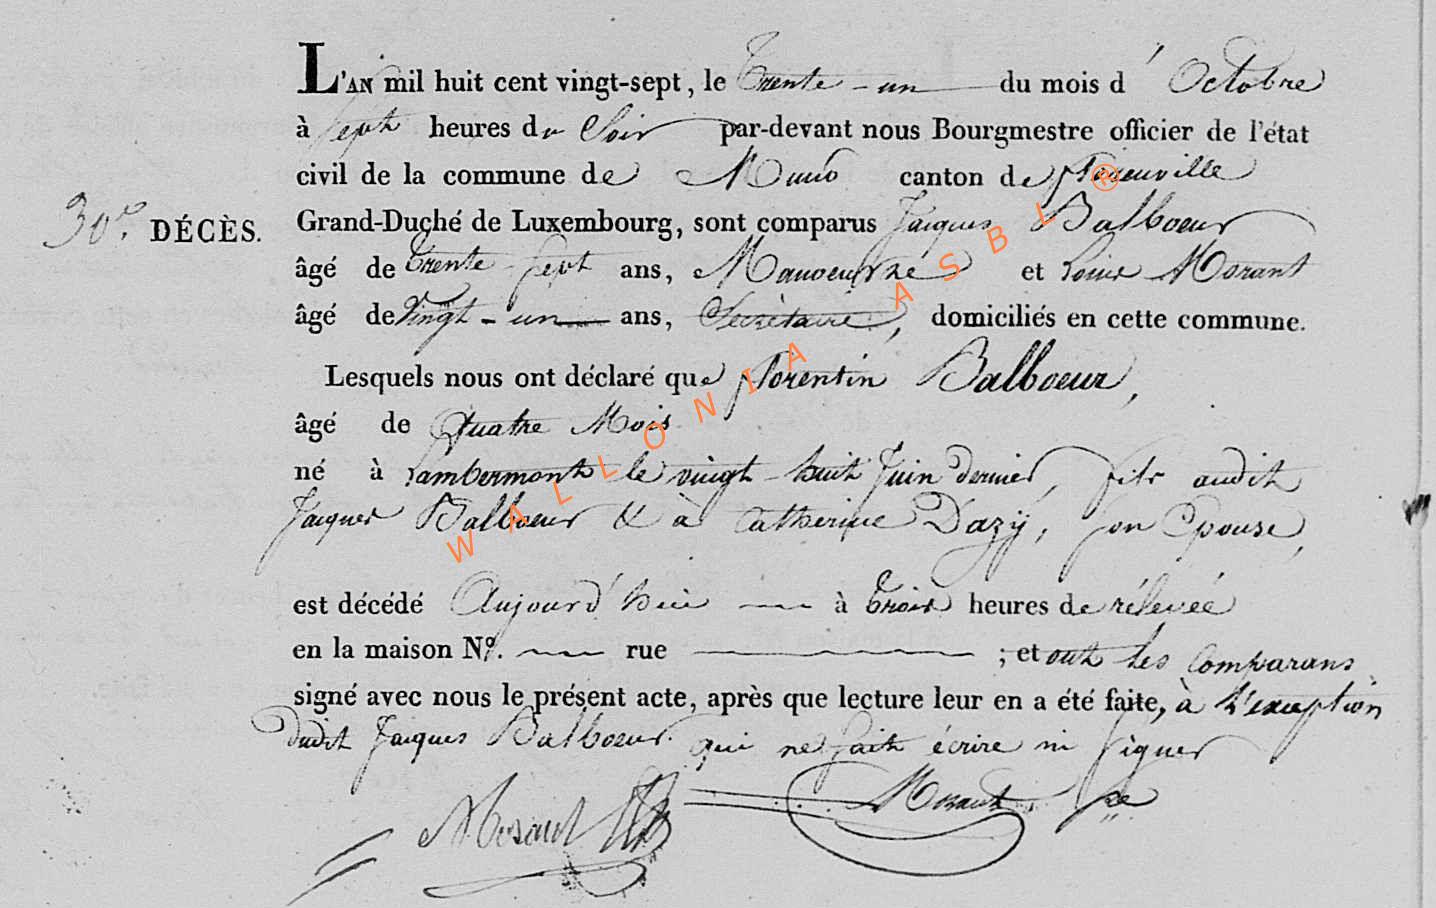 L'AN mil huit cent vingt-sept, le Trente-un du mois d'Octobre
à sept heures du Soir par-devant nous Bourgmestre officier de l'état
civil de la commune de Muno canton de florenville
30e DÉCÈS. Grand-Duché de Luxembourg, sont comparus Jacques Balboeur
âgé de Trente sept ans, Manoeuvre et Louis Morant
âgé de Vingt-un ans, Secrétaire, domiciliés en cette commune.
Lesquels nous ont déclaré que florentin Balboeur,
âgé de Quatre Mois
né à Lambermont le vingt-huit Juin dernier, fils audit
Jacques Balboeur & à Catherine Dazÿ, son Epouse,
est décédé Aujourd'hui à Trois heures de rélevée
en la maison No. rue ; et ont les Comparans
signé avec nous le présent acte, après que lecture leur en a été faite, à l'exception
dudit Jacques Balboeur qui ne sait écrire ni signer
Morant
WALLONIA ASBL ®